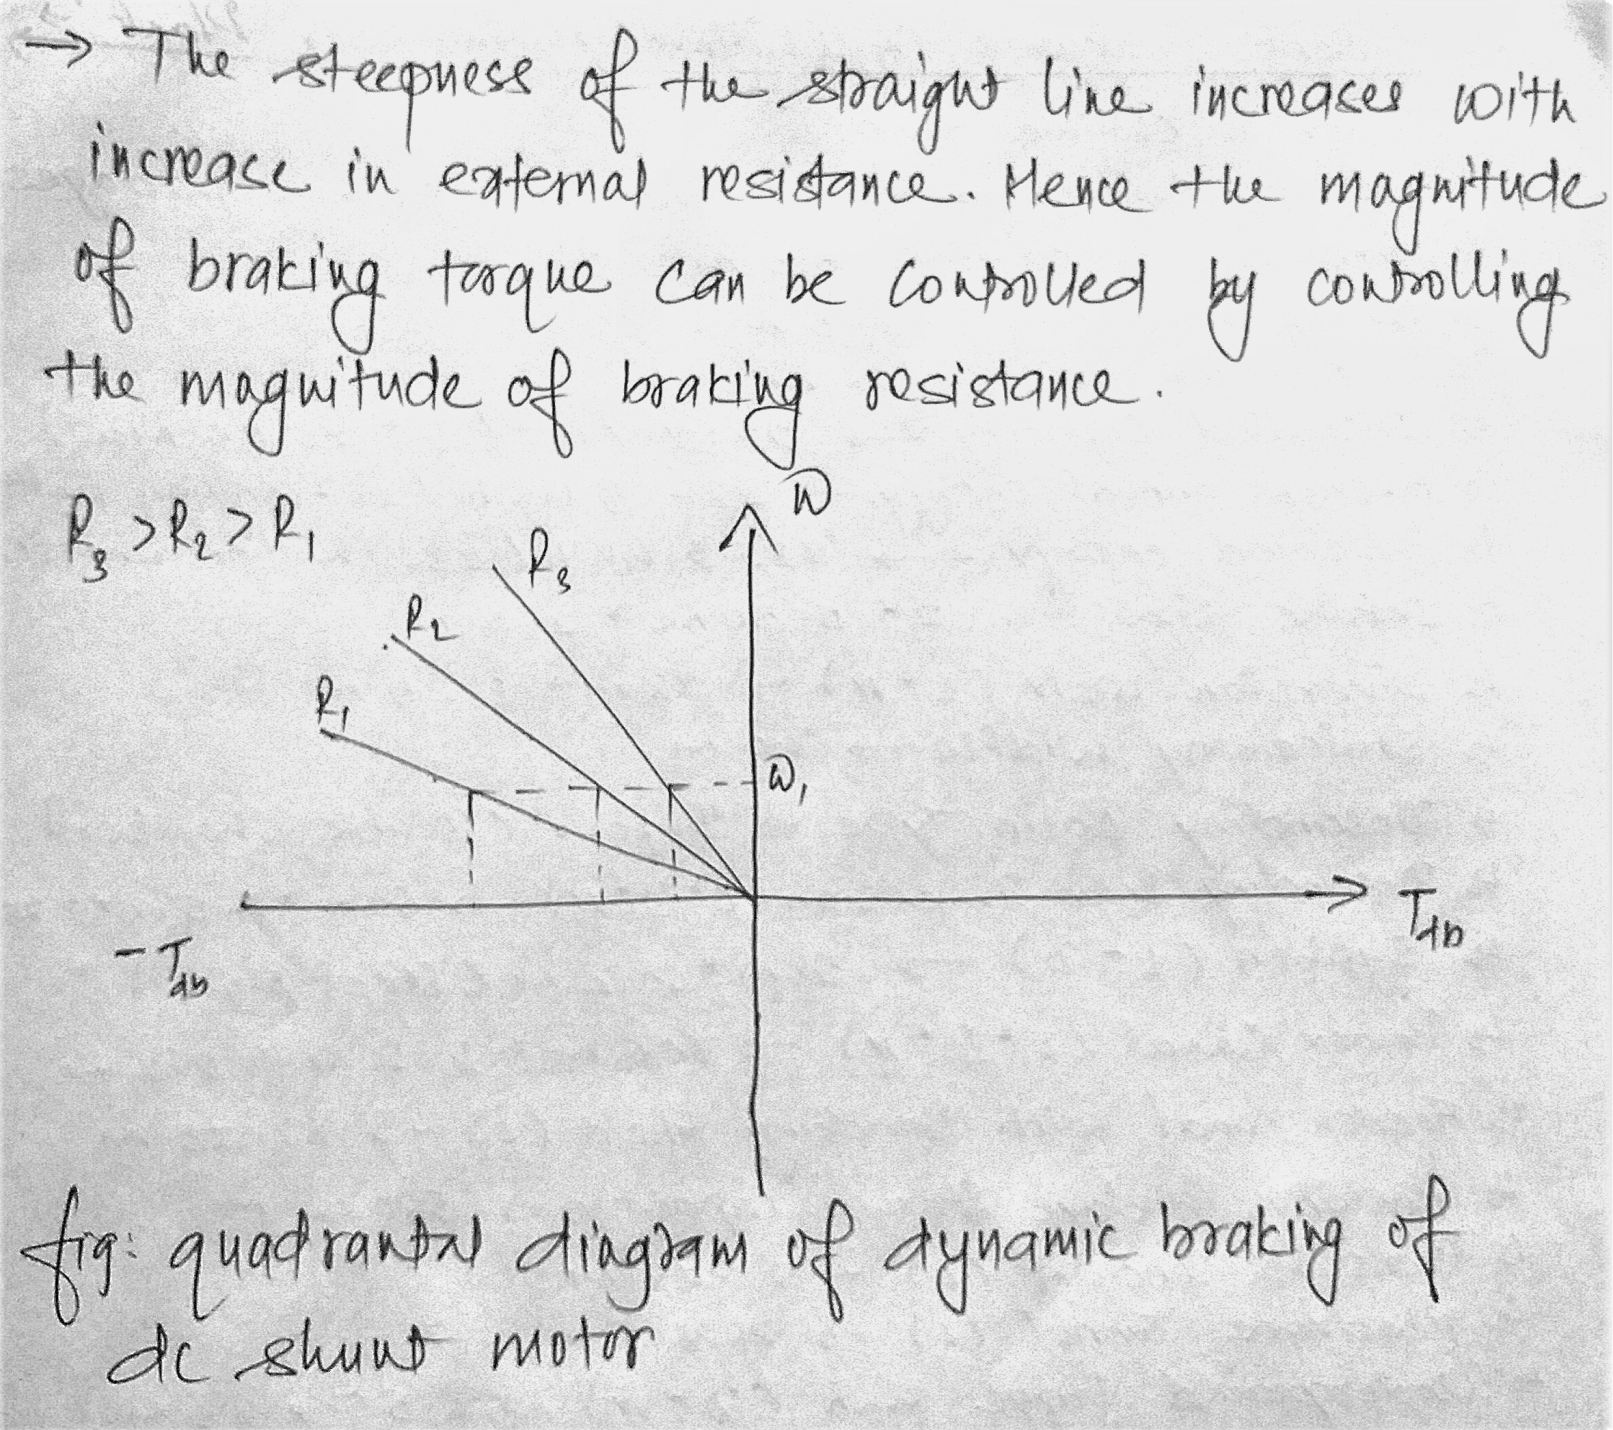 → The steepness of the straight line increases with
increase in external resistance. Hence the magnitude
of braking torque can be controlled by controlling
the magnitude of braking resistance.
R₃ > R₂ > R₁
ω
R₃
R₂
R₁
ω₁
T_db
-T_db
fig: quadrantal diagram of dynamic braking of
dc shunt motor